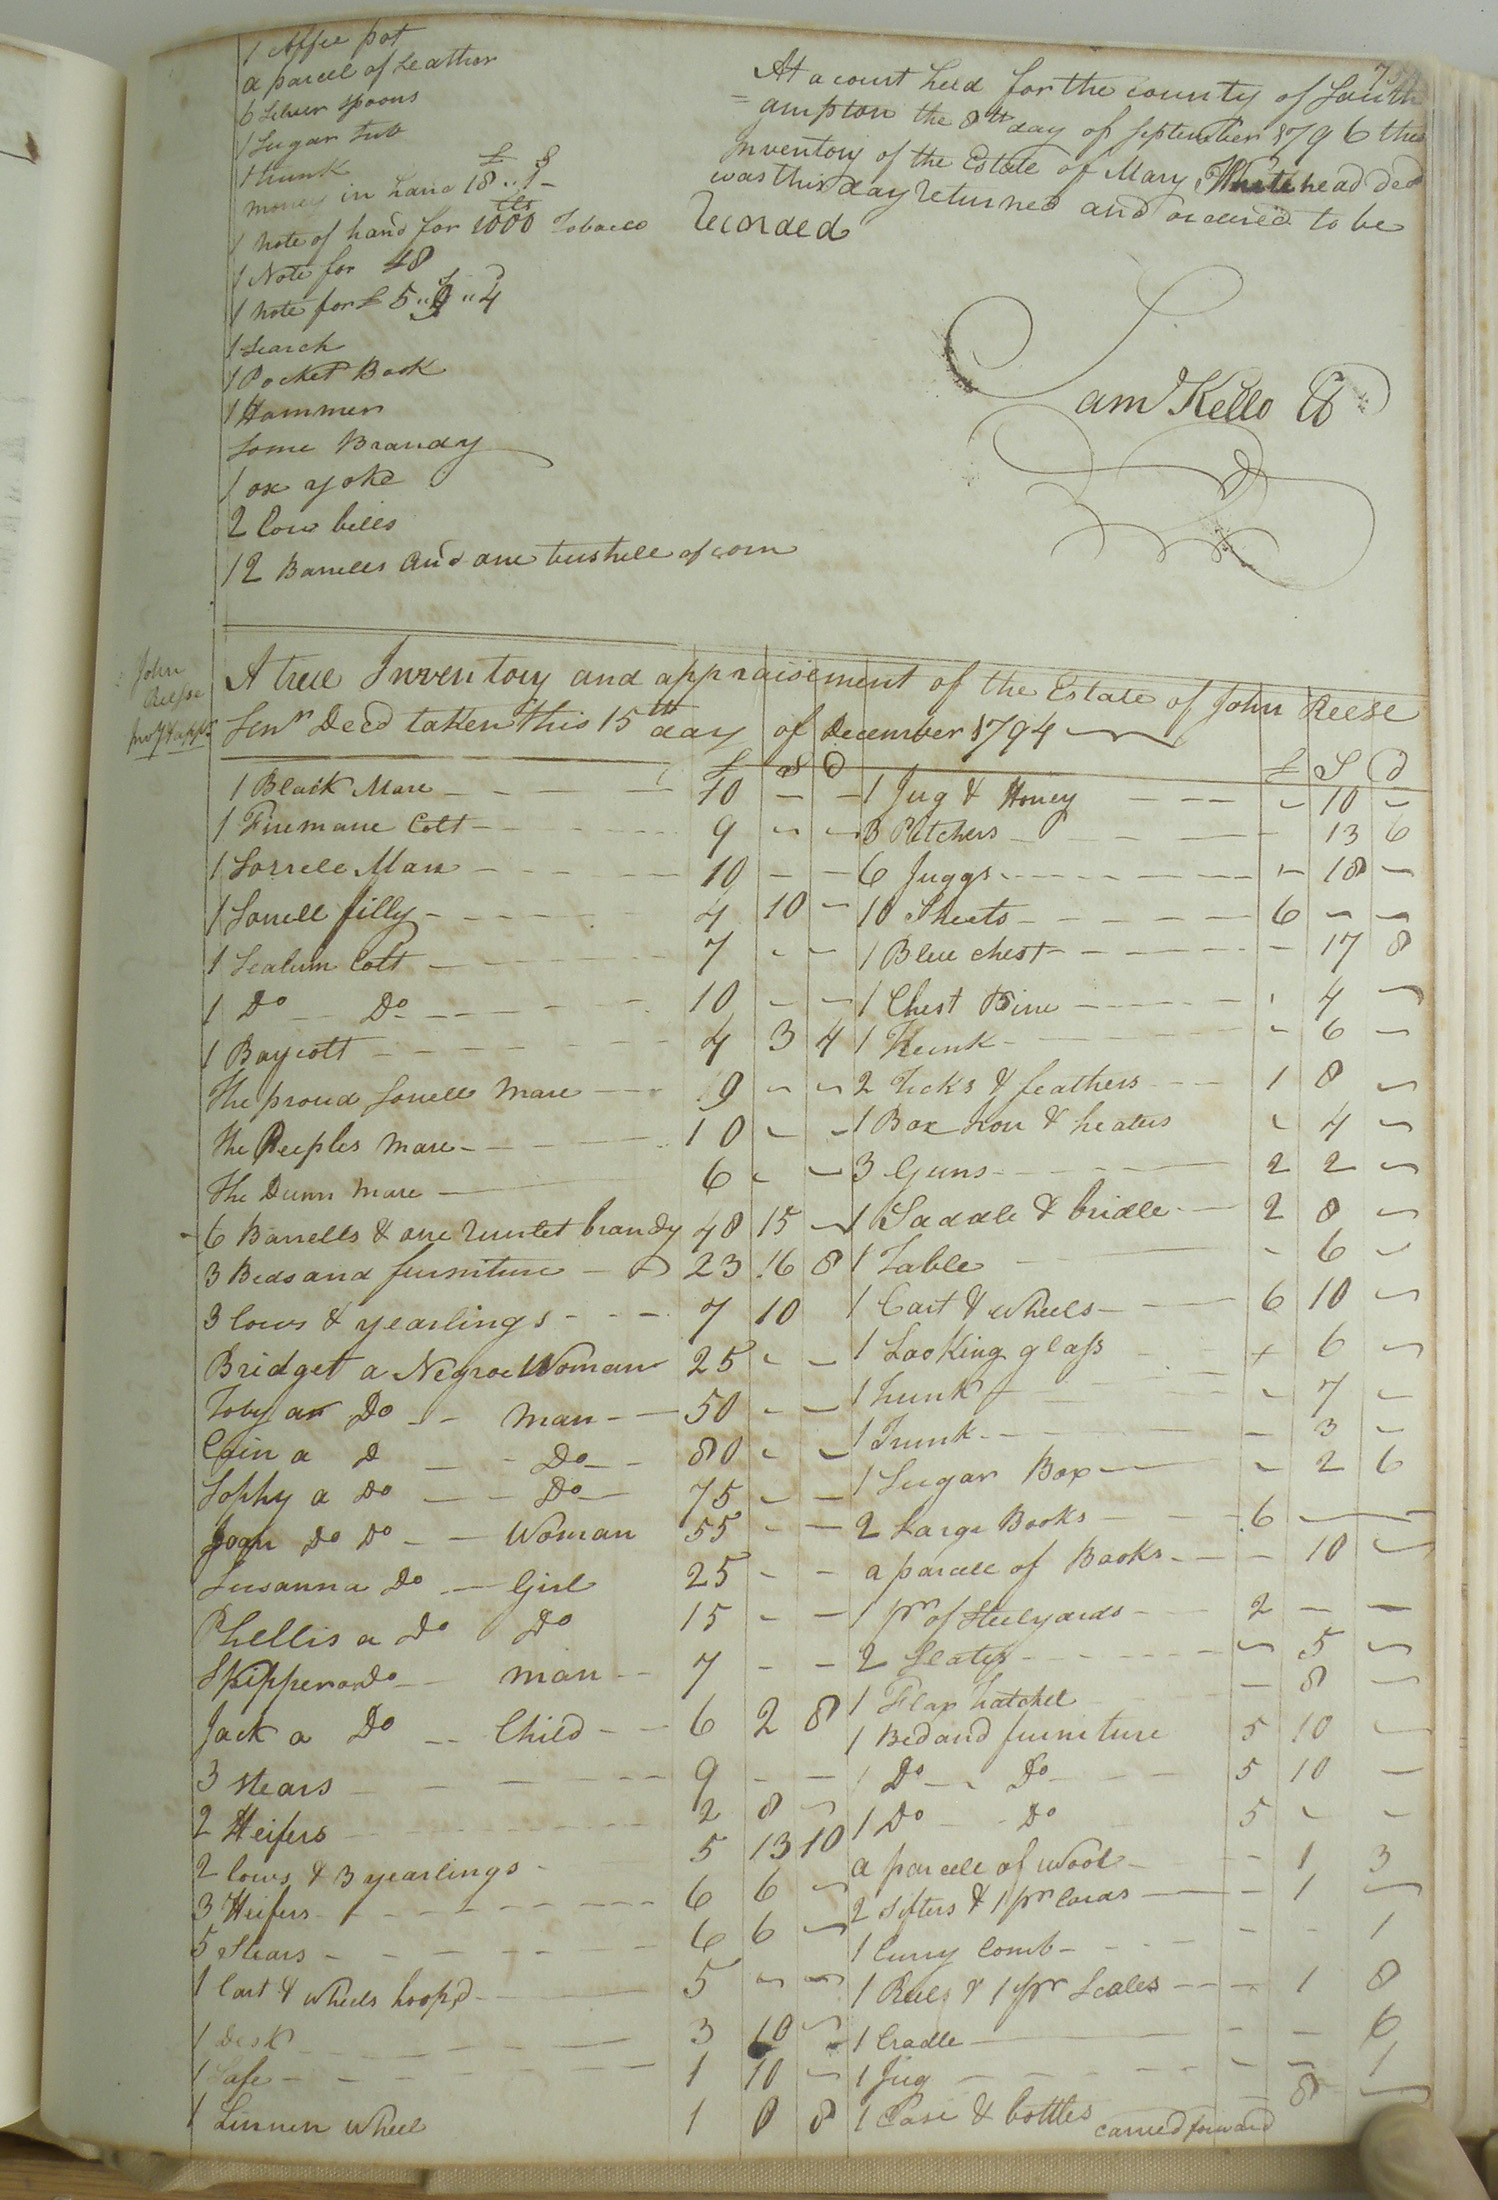 1 Coffee pot
a parcel of Leather
6 Silver spoons
1 Sugar Tub
1 trunk
money in hand 18 ..
1 note of hand for 1000 Tobacco
1 Note for 48
1 note for £ 5 .. 9 .. 4
1 Search
1 Pocket Book
1 Hammer
Some Brandy
1 ox yoke
2 Cow bells
12 Barrells and one bushell of corn
At a court held for the county of South
=ampton the 8th day of September 1796 this
Inventory of the Estate of Mary Whitehead Decd
was this day returned and ordered to be
Recorded
Saml Kello
John
Reese
A true Inventory and appraisement of the Estate of John Reese
Senr Decd taken this 15th day of December 1794
£ S D
1 Black Mare 10 - -
1 Firemane Colt 9 - -
1 Sorrele Mare 10 - -
1 Sorrell filly 4 10 -
1 Colt 7 - -
1 Do Do 10 - -
1 Baycolt 4 3 4
The proud Sorrell Mare 9 - -
The Peeples Mare 10 - -
The Dunn Mare 6 - -
6 Barrells & one Runlet brandy 48 15 -
3 Beds and furniture 23 16 8
3 Cows & yearlings 7 10
Bridget a Negroe Woman 25 - -
Toby a Do man 50 - -
Cain a D Do 80 - -
Sophy a Do Do 75 - -
Joan Do Do Woman 55 - -
Susanna Do Girl 25 - -
Phellis a Do Do 15 - -
Skipper a Do man 7 - -
Jack a Do Child 6 2 8
3 Stears 9 - -
2 Heifers 2 8 -
2 Cows & 3 yearlings 5 13 10
3 Heifers 6 6 -
5 Stears 6 6 -
1 Cart & wheels hoop'd 5 - -
1 Desk 3 10 -
1 Safe 1 10 -
1 Linnen Wheel 1 0 8
£ S D
1 Jug & Honey - 10 -
3 Pitchers - 13 6
6 Juggs - 18 -
10 Sheets 6 - -
1 Blue chest - 17 8
1 Chest Pine - 4 -
1 Trunk - 6 -
2 Ticks & feathers 1 8 -
1 Box Iron & heaters - 4 -
3 Guns 2 2 -
1 Saddle & bridle 2 8 -
1 Table - 6 -
1 Cart & wheels 6 10 -
1 Looking glass + 6 -
1 trunk - 7 -
1 Trunk - 3 -
1 Sugar Box - 2 6
2 Large Books 6 - -
a parcele of Books - 10 -
1 pr of Steelyards 2 - -
2 Slates - 5 -
1 Flax hatchel - 8 -
1 Bed and furniture 5 10 -
1 Do Do 5 10 -
1 Do Do 5 - -
a parcele of wool - 1 3
2 sifters & 1 pr Cards - 1 -
1 Curry Comb - - 1
1 Reel & 1 pr Scales - 1 8
1 Cradle - - 6
1 Jug - - 1
1 Case & bottles - 8 -
carried forward